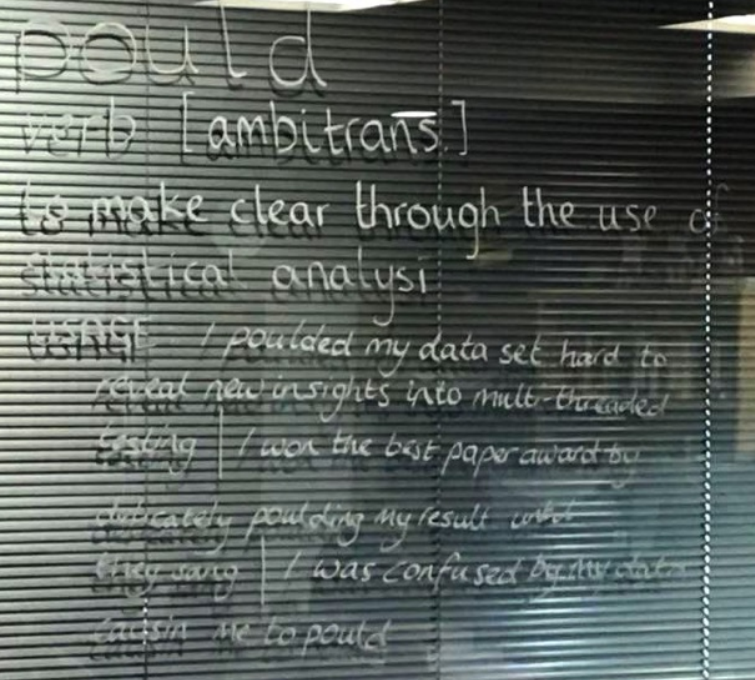 pould
verb [ambitrans.]
to make clear through the use of
statistical analysi
USAGE I poulded my data set hard to
reveal new insights into multi-threaded
testing | I won the best paper award by
delicately poulding my result until
they sang | I was confused by my data
causin me to pould